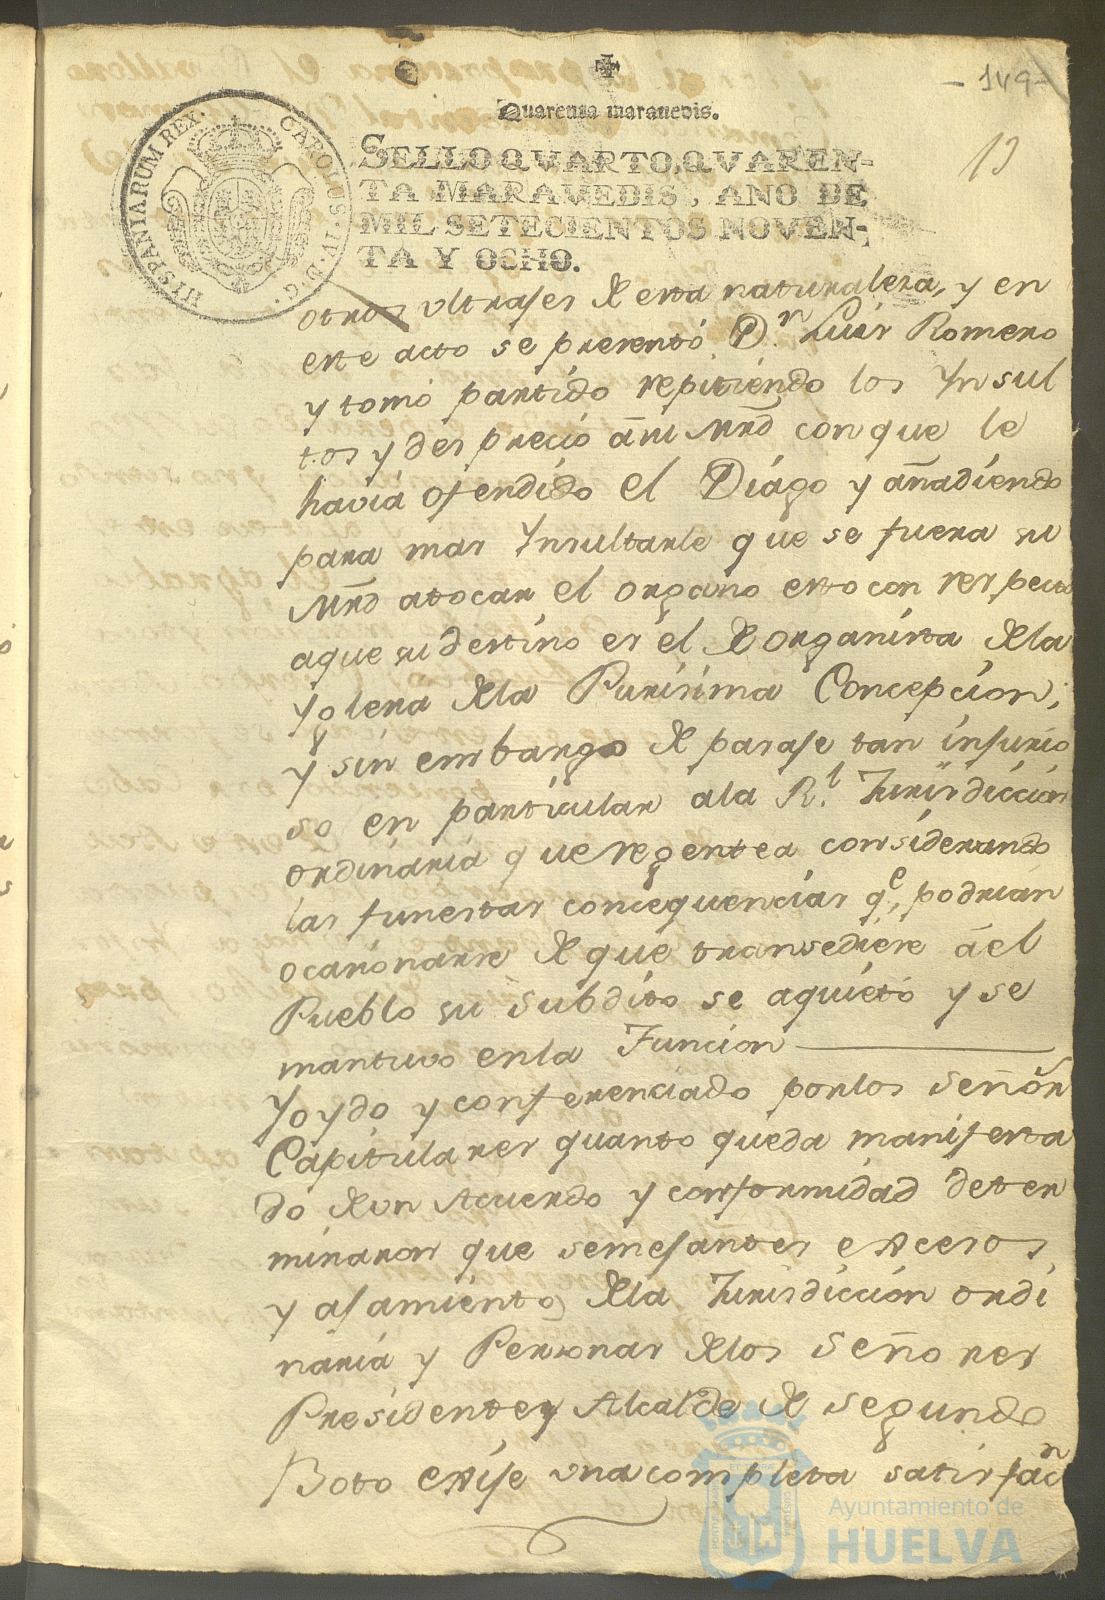 -149-
13
Quarenta maravedis.
SELLO QVARTO, QVAREN-
TA MARAVEDIS, AÑO DE
MIL SETECIENTOS NOVEN-
TA Y OCHO.
CAROLUS IV D G HISPANIARUM REX
otros ultrajes de esta naturaleza, y en
este acto se presentó Dn Luis Romero
y tomó partido repitiendo los Ynsul
tos y desprecio á su Mrd con que le
havia ofendido el Diágo y añadiendo
para mas Ynsultarle que se fuera su
Mrd atocar el organo esto con respecto
aque su destino es el de organista dela
Yglesia dela Purisima Concepcion;
y sin embargo de paraje tan injurio
so en particular ala Rl Jurisdiccion
ordinaria que regentea considerando
las funestas concequencias qe podrian
ocacionarse de que transediese áel
Pueblo su subdito se aquietó y se
mantuvo enla Funcion
Yoydo y conferenciado porlos señor
Capitulares quanto queda manifesta
do de un Acuerdo y conformidad deter
minaron que semejantes excesos
y ajamiento dela Jurisdiccion ordi
naria y Personas delos Señores
Presidente y Alcalde de segundo
Boto exije una completa satisfacn
Ayuntamiento de
HUELVA